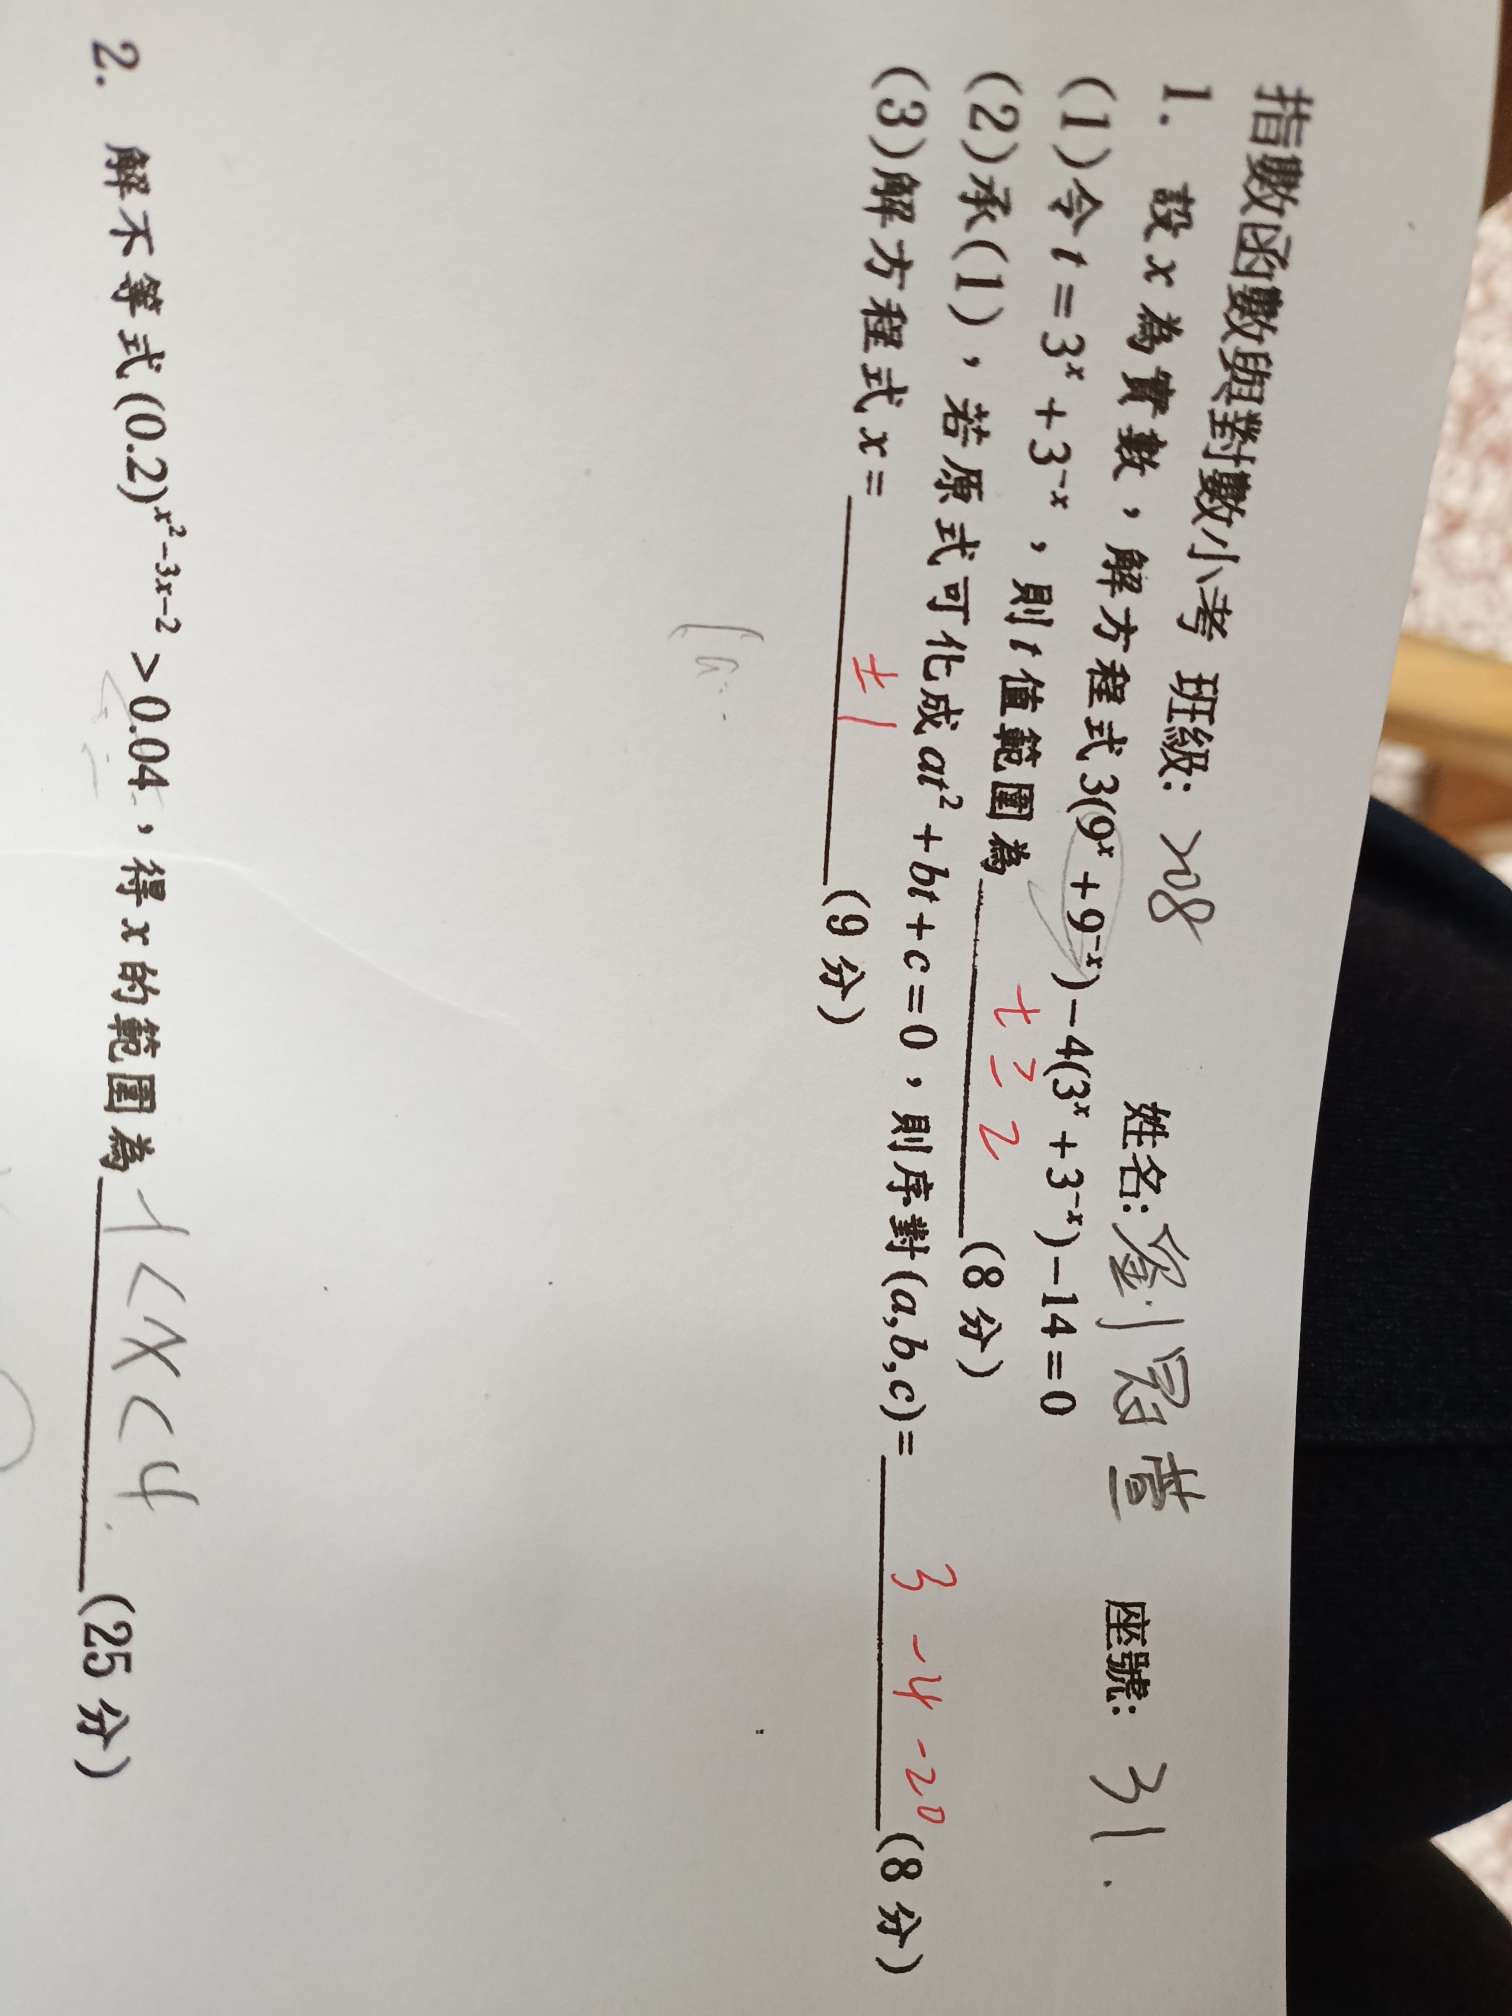 指數函數與對數小考 班級: 208 姓名: 劉冠萱 座號: 31.
1. 設 x 為實數，解方程式 3(9ˣ + 9⁻ˣ) − 4(3ˣ + 3⁻ˣ) − 14 = 0
(1)令 t = 3ˣ + 3⁻ˣ，則 t 值範圍為 t ≥ 2 (8 分)
(2)承(1)，若原式可化成 at² + bt + c = 0，則序對 (a,b,c) = 3 -4 -20 (8 分)
(3)解方程式 x = ±1 (9 分)
2. 解不等式 (0.2)^(x²−3x−2) > 0.04，得 x 的範圍為 1<x<4 (25 分)